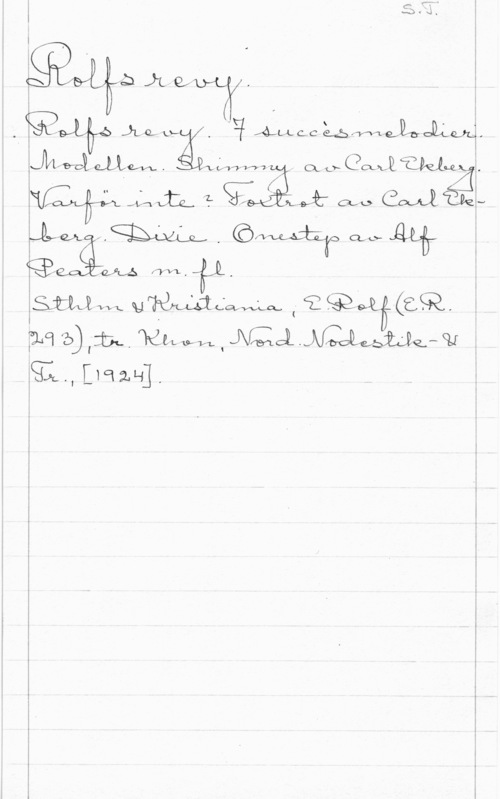 S.T.
Rolfs revy.
Rolfs revy. 7 succèsmelodier.
Modellen. Shimmy av Carl Ekberg.
Varför inte? Foxtrot av Carl Ek-
berg. Dixie. Onestep av Alf
Peaters m. fl.
Sthlm & Kristiania, E. Rolf (E.R.
293), tr. Khvn, Nord. Nodestik- &
Tr., [1924].